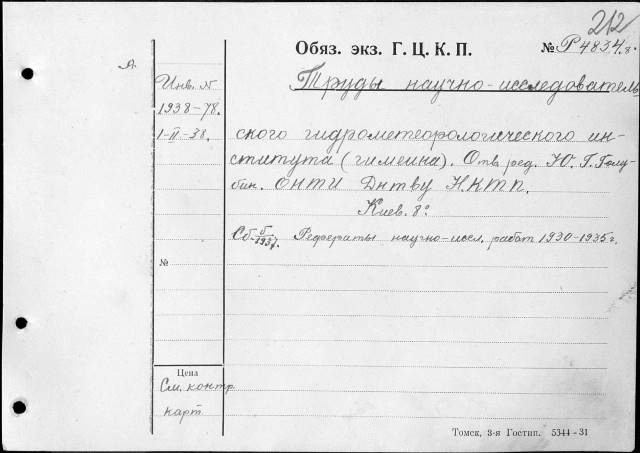 212
Обяз. экз. Г. Ц. К. П. № Р 4834.8.
А.
Инв. N
1938-78.
1-II-38.
Труды научно-исследователь
ского гидрометеорологического ин-
ститута (гимеина). Отв. ред. Ю. Г. Голу-
бин. ОНТИ Днтву Н.К.Т.П.
Киев. 8º
Сб. 5/1937. Рефераты научно-иссл. работ 1930-1935 г.
№
Цена
См. контр.
карт.
Томск, 3-я Гостип. 5344-31